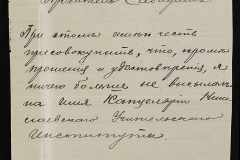 При этомъ имѣю честь
присовокупить, что, кромѣ
прошенія и удостовѣренія, я
ничего больше не высылалъ
на имя Канцеляріи
Учительскаго
Института